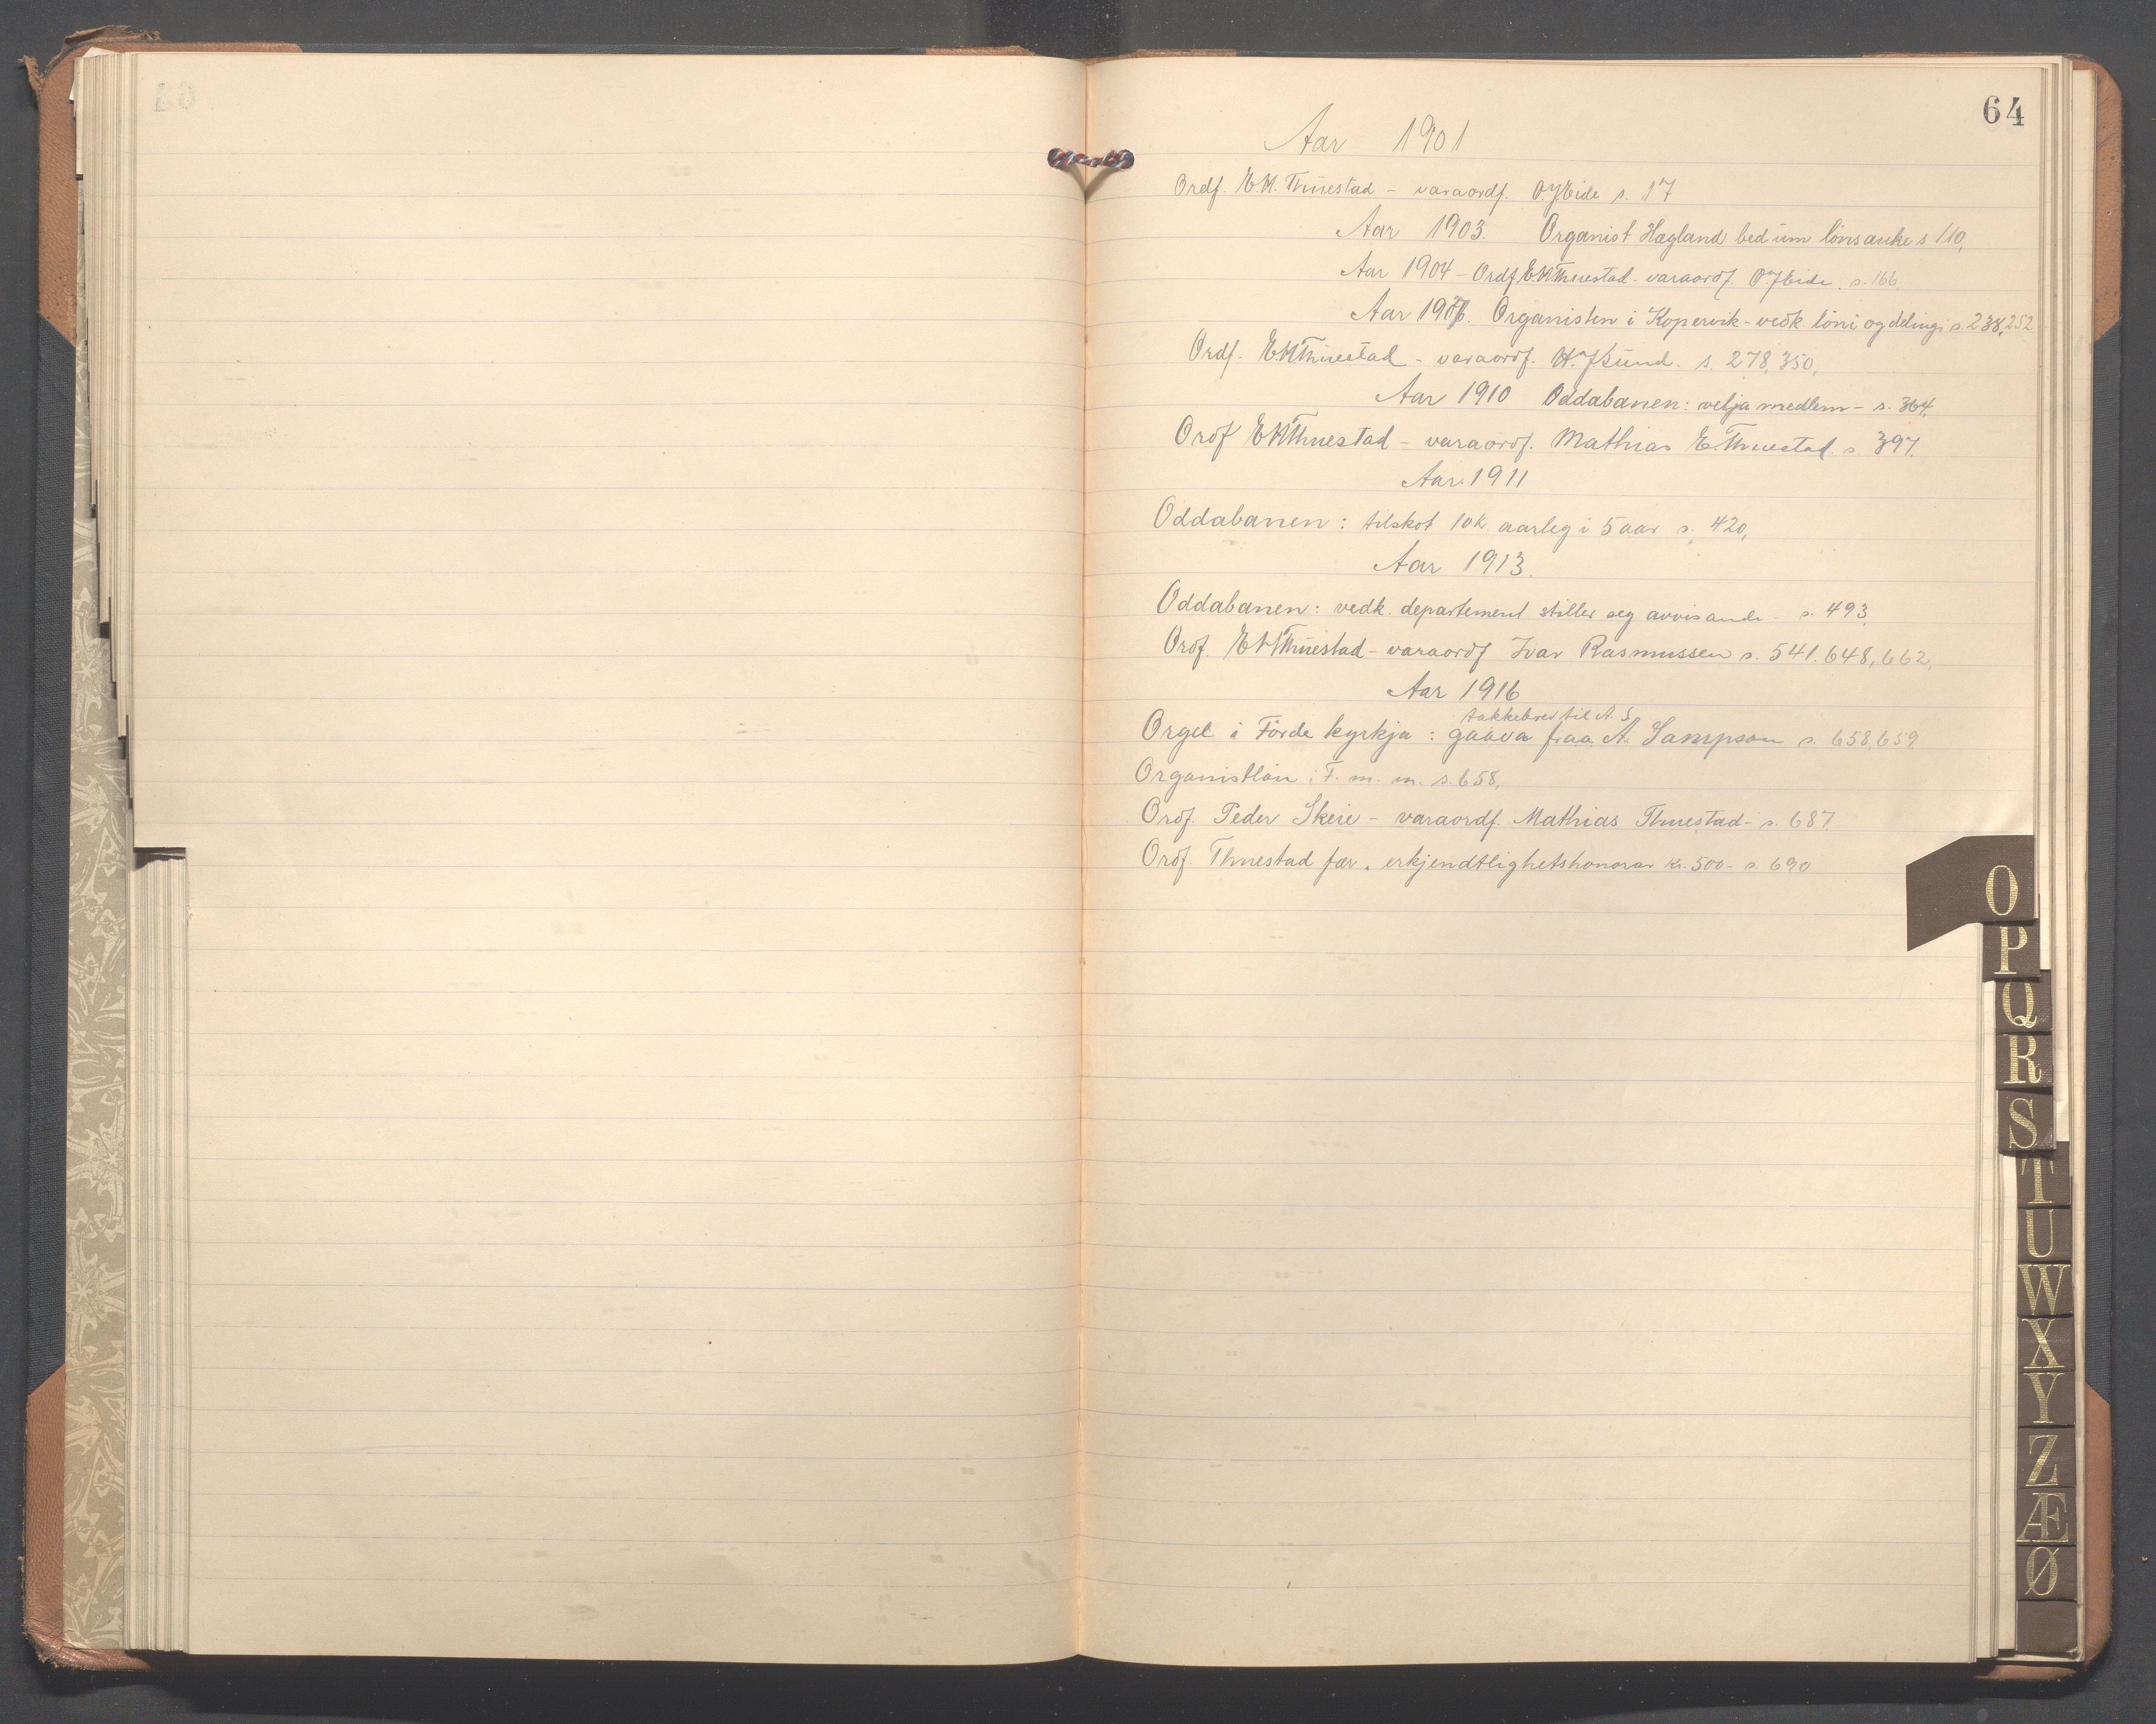 64
Aar 1901
Ordf. E.H. Thuestad - varaordf. O. J. Eide s. 17
Aar 1903. Organist Hagland bed um lönsauke s 110,
Aar 1904 - Ordf E.H. Thuestad - varaordf. O. J Eide. s. 166,
Organisten i Kopervik - vedk. lön i ogdeling s. 238, 252
Ordf. E.H Thuestad - varaordf. H. J. Sund. s. 278, 350,
Aar 1910 Oddabanen: velja medlem - s. 364,
Ordf EH Thuestad - varaordf. Mathias E. Thuestad. s 397.
Aar 1911
Oddabanen: tilskot 10 k aarleg i 5 aar s. 420,
Aar 1913.
Oddabanen: vedk. departement stiller seg avvisande - s. 493,
Ordf. E H Thuestad - varaordf Ivar Rasmussen s. 541. 648, 662,
Aar 1916
takkebrev til A. S.
Orgel i Förde kyrkja: gaava fraa A. Sampson s. 658, 659
Organistlön i F. m. m. s. 658,
Ordf. Peder Skeie - varaordf. Mathias Thuestad - s. 687.
Ordf. Thuestad fær erkjendtlighetshonorar kr. 500 - s. 690
O
P
Q
R
S
T
U
W
X
Y
Z
Æ
Ø